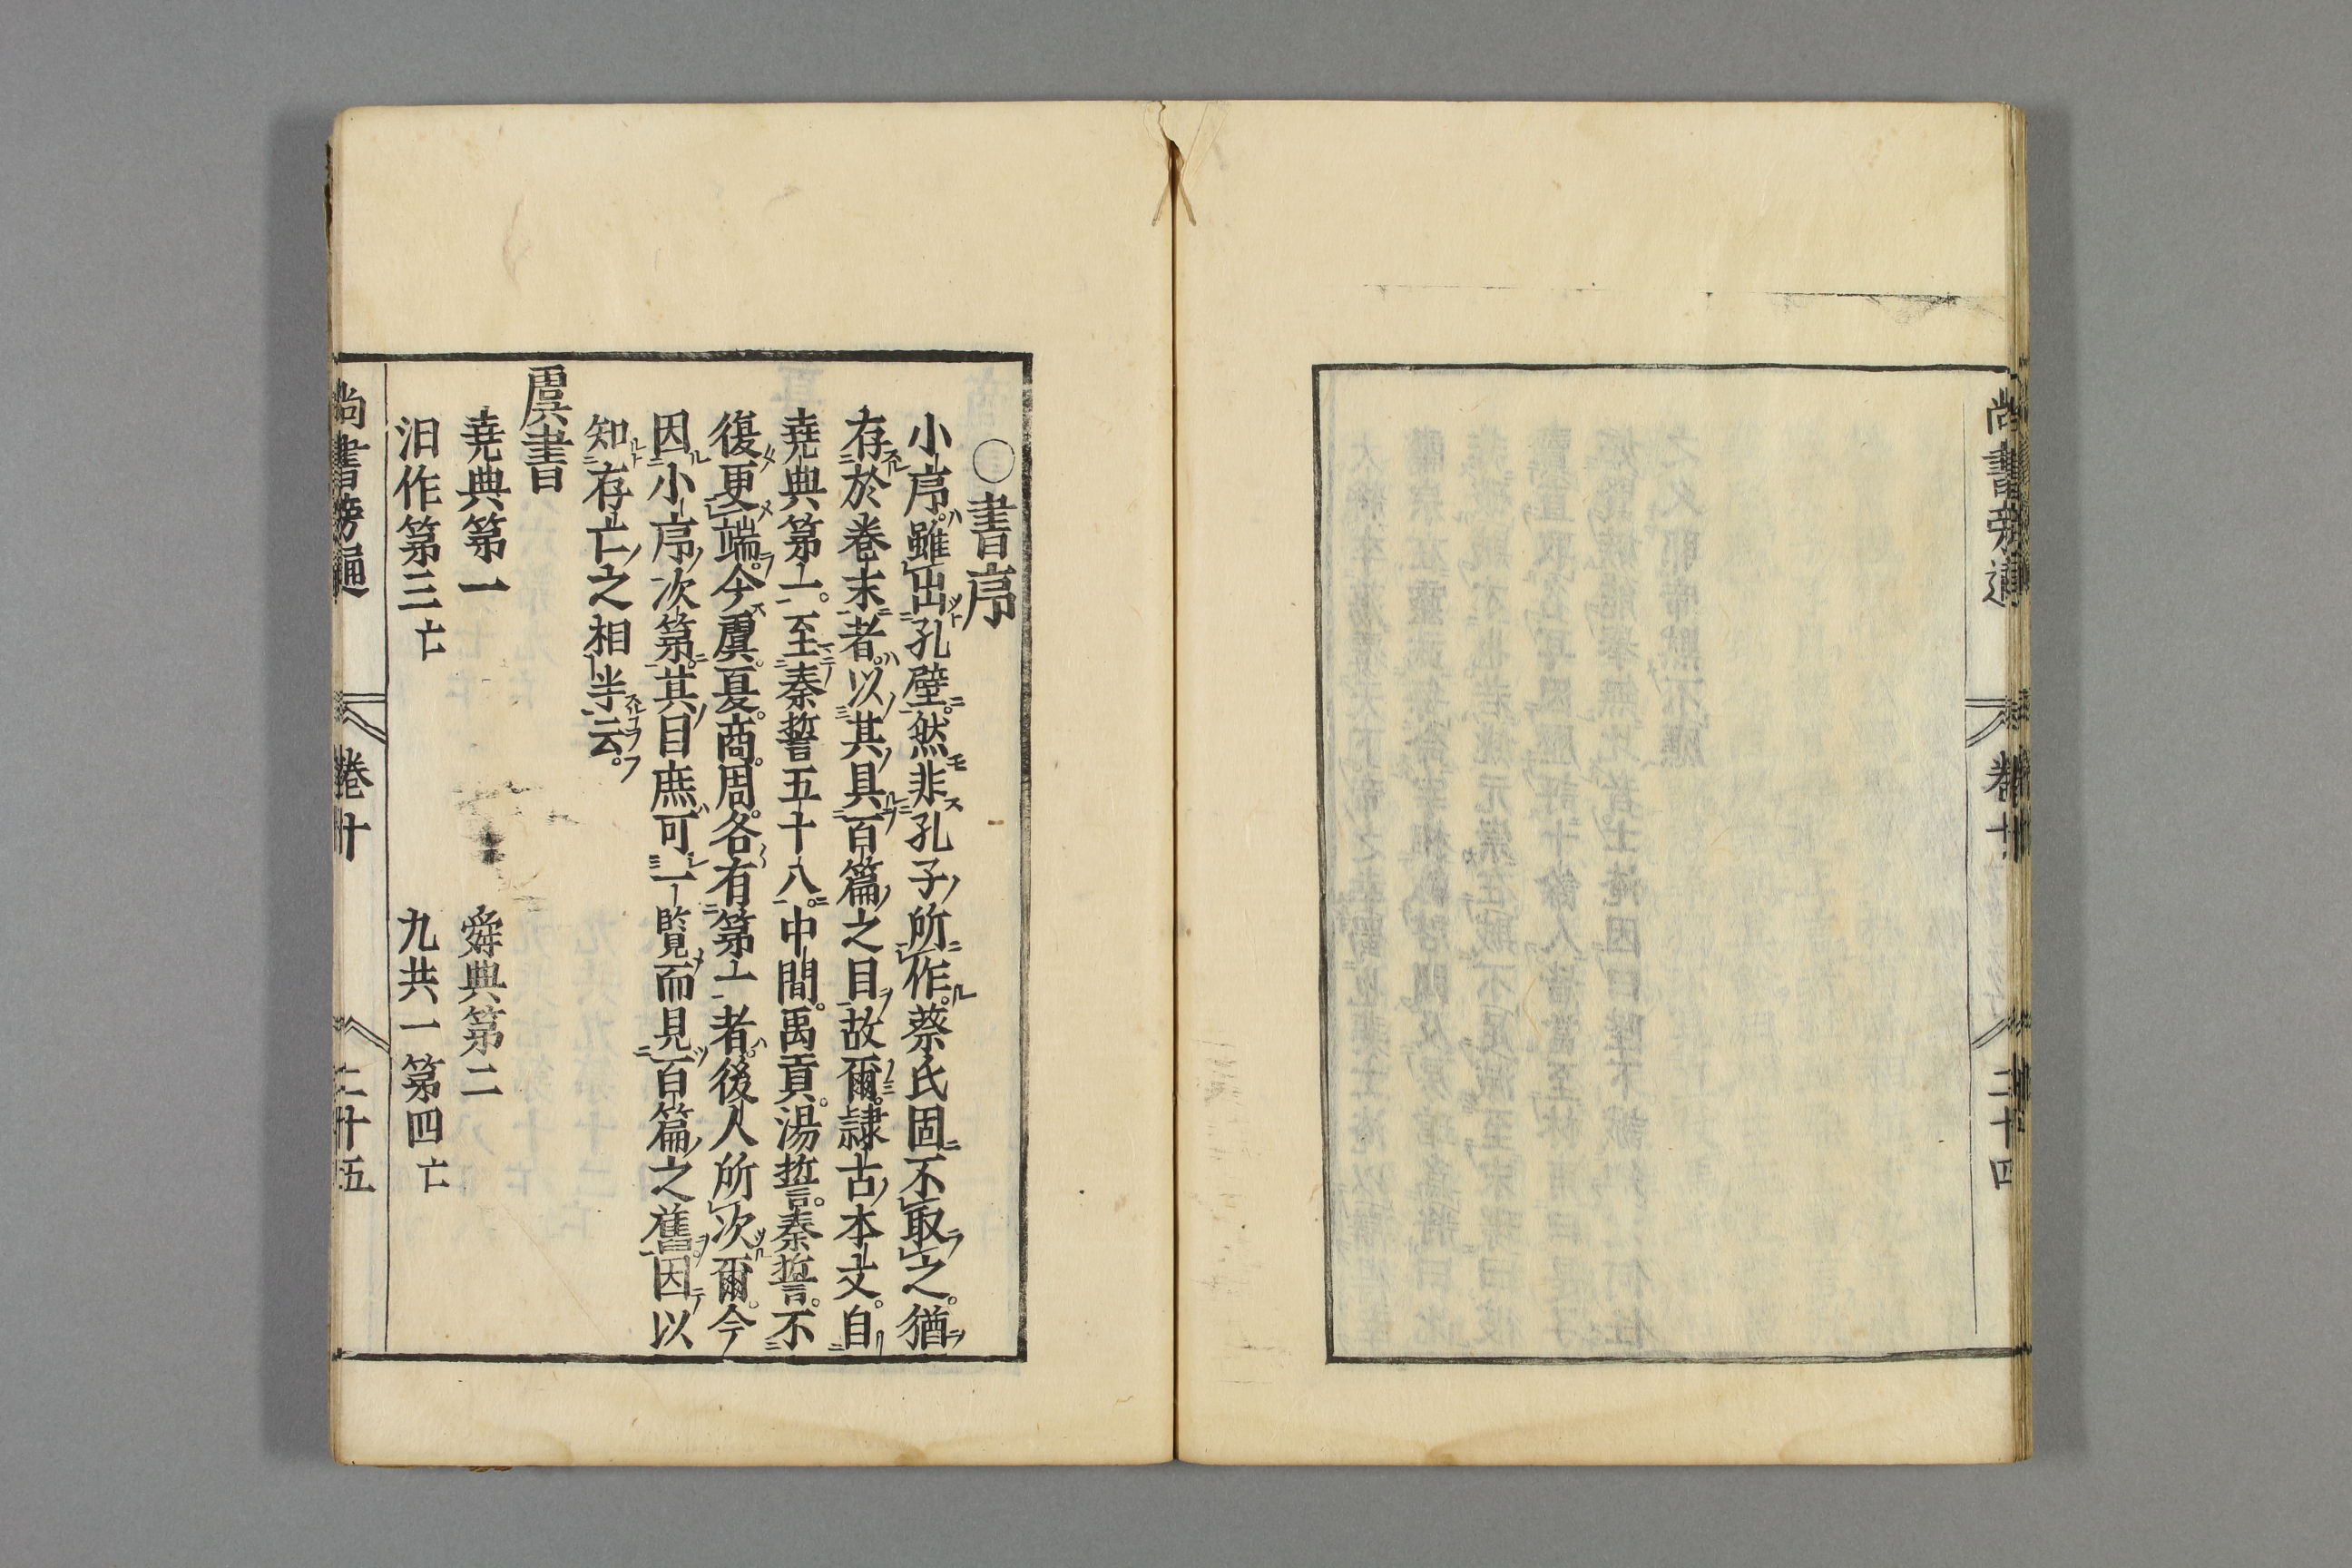 尚書旁通
卷十
二十四
○書序
小序雖出孔壁然非孔子所作蔡氏固不取之猶
存於卷末者以其具百篇之目故爾隷古本文自
堯典第一至秦誓五十八中間禹貢湯誓秦誓不
復更端今虞夏商周各有第一者後人所次爾今
因小序次第其目庶可一覧而見百篇之舊因以
知存亡之相半云
虞書
堯典第一　舜典第二
汨作第三亡　九共一第四亡
尚書旁通
卷十
二十五